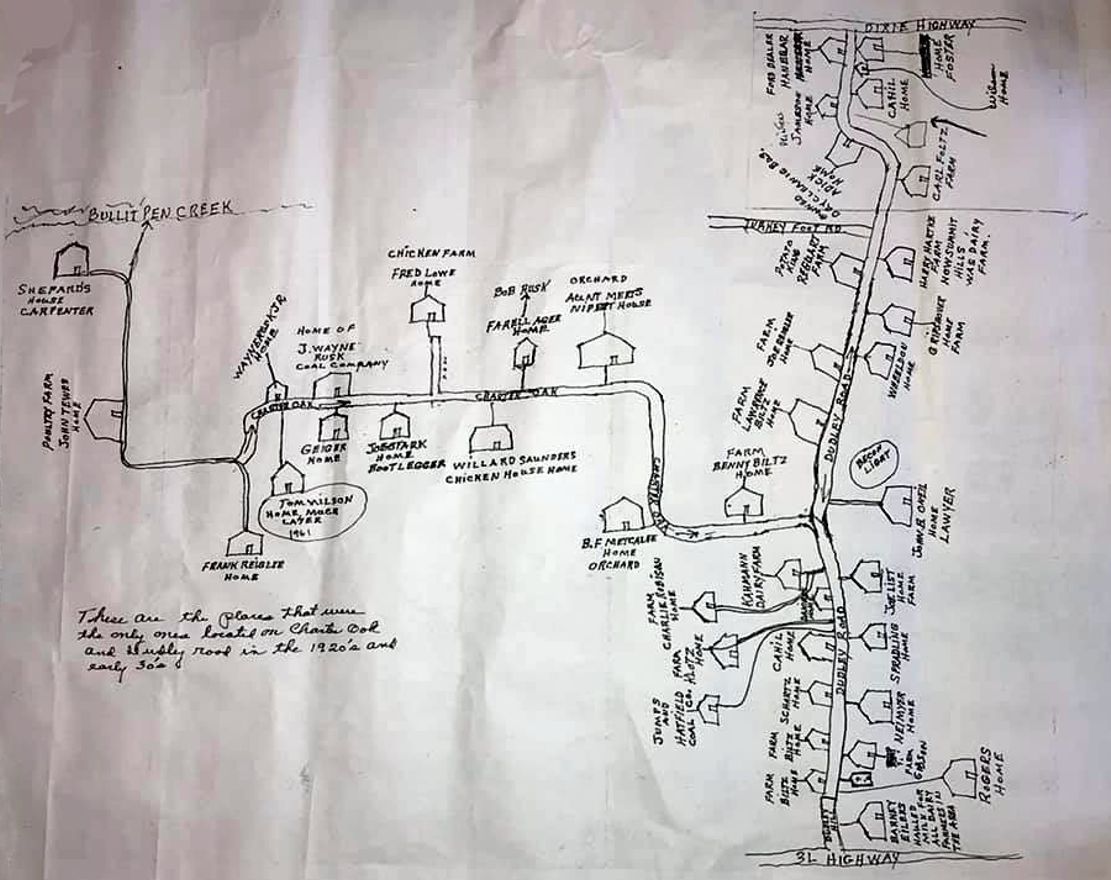 DIXIE HIGHWAY
FORD DEALER
HANEBAR
HOME
HOME
FOSTER
Wilson
HOME
CAHIL
HOME
JAMESON
HOME
DRY CLEANING BLD.
ADICK
HOME
CARL FOLTZ
FARM
TURKEY FOOT RD
POTATO
KING
FARM
HARTKE
FARM
NOW SUMMIT
HILLS
WAS DAIRY
FARM.
HOME
FARM
FARM
HOME
HOME
FARM
LAWRENCE
BILTZ
HOME
DUDLEY ROAD
BECON
LIGHT
FARM
BENNY BILTZ
HOME
JOHN B. ONEIL
HOME
LAWYER
BULLIT PEN CREEK
SHEPARD'S
HOUSE
CARPENTER
POULTRY FARM
JOHN TEWES
HOME
WAYNE RUSK JR
HOME
HOME OF
J. WAYNE
RUSK
COAL COMPANY
CHICKEN FARM
FRED LOWE
HOME
BOB RUSK
FARELL AGER
HOME
ORCHARD
AUNT MEETS
NIPERT HOUSE
CHARTER OAK
CHARTER OAK
GEIGER
HOME
JOE STARK
HOME
BOOTLEGGER
WILLARD SAUNDERS
CHICKEN HOUSE HOME
TOM WILSON
HOME, MUCH
LATER
1961
FRANK REIBLIE
HOME
CHARTER OAK
B.F. METCALFE
HOME
ORCHARD
These are the places that were
the only ones located on Charter Oak
and Dudley road in the 1920's and
early 30's
KAHMANN
DAIRY FARM
FARM
CHARLIE ROBISON
HOME
FARM
KLOTZ
HOME
JUMPS
AND
HATFIELD
COAL CO.
CAHIL
HOME
SCHARTZ
HOME
FARM
BILTZ
HOME
FARM
BILTZ
HOME
JOE LIST
HOME
FARM
DUDLEY ROAD
SPRADLING
HOME
NEIMYER
HOME
FARM
GIBSON
ROGERS
HOME
BARNEY
EILERS
HAULED
MILK FOR
ALL DAIRY
FARMERS IN
THE AREA
3L HIGHWAY